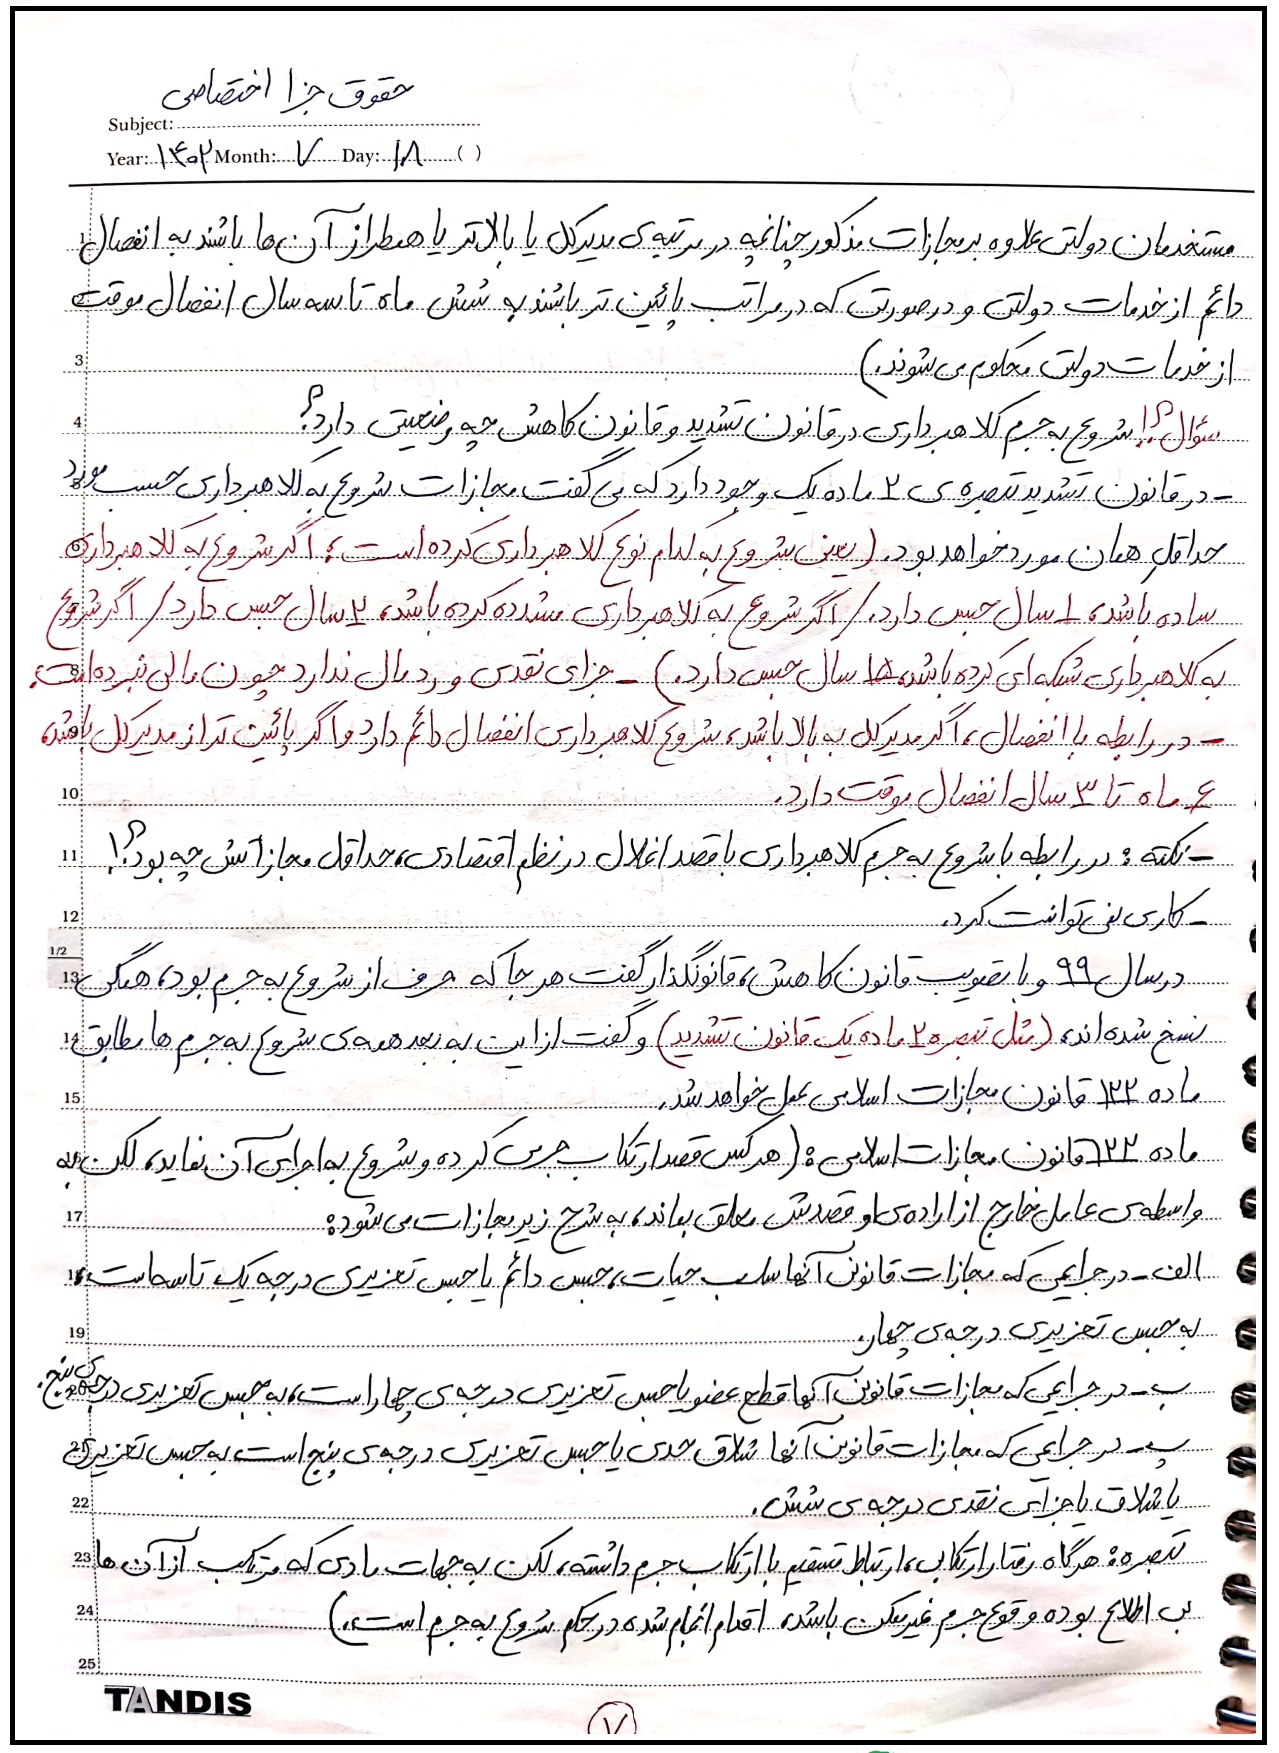 حقوق جزا اختصاصی
Subject:
Year: ۱۴۰۲ Month: ۷ Day: ۱۸ ( )
1 مستخدمان دولتی علاوه بر مجازات مذکور چنانچه در مرتبه‌ی مدیرکل یا بالاتر یا همطراز آن ها باشند به انفصال
2 دائم از خدمات دولتی و در صورتی که در مراتب پائین تر باشند به شش ماه تا سه سال انفصال موقت
3 از خدمات دولتی محکوم می شوند.)
4 سؤال؟! شروع به جرم کلاهبرداری در قانون تشدید و قانون کاهش چه وضعیتی دارد؟
5 - در قانون تشدید تبصره ی ۲ ماده یک وجود دارد که می گفت مجازات شروع به کلاهبرداری حسب مورد
6 حداقل همان مورد خواهد بود. (یعنی شروع به کدام نوع کلاهبرداری کرده است؛ اگر شروع به کلاهبرداری
7 ساده باشد، ۱ سال حبس دارد. / اگر شروع به کلاهبرداری مشدده کرده باشد، ۲ سال حبس دارد / اگر شروع
8 به کلاهبرداری شبکه ای کرده باشد، ۱۵ سال حبس دارد.) - جزای نقدی و رد مال ندارد چون مالی نبرده است.
9 - در رابطه با انفصال، اگر مدیرکل به بالا باشد، شروع کلاهبرداری انفصال دائم دارد و اگر پائین تر از مدیرکل باشد،
10 ۶ ماه تا ۳ سال انفصال موقت دارد.
11 - نکته: در رابطه با شروع به جرم کلاهبرداری با قصد اخلال در نظم اقتصادی، حداقل مجازاتش چه بود؟!
12 - کاری نمی توانست کرد.
1/2
13 در سال ۹۹ و با تصویب قانون کاهش، قانونگذار گفت هر جا که حرف از شروع به جرم بود، همگی
14 نسخ شده اند، (مثل تبصره ۲ ماده یک قانون تشدید) و گفت از این به بعد همه ی شروع به جرم ها مطابق
15 ماده ۱۲۲ قانون مجازات اسلامی عمل خواهد شد.
16 ماده ۱۲۲ قانون مجازات اسلامی: (هرکس قصد ارتکاب جرمی کرده و شروع به اجرای آن نماید، لکن به
17 واسطه ی عامل خارج از اراده ی او قصدش معلق بماند، به شرح زیر مجازات می شود:
18 الف - در جرایمی که مجازات قانونی آنها سلب حیات، حبس دائم یا حبس تعزیری درجه یک تا سه است،
19 به حبس تعزیری درجه ی چهار.
20 ب - در جرایمی که مجازات قانونی آنها قطع عضو یا حبس تعزیری درجه ی چهار است، به حبس تعزیری درجه ی پنج.
21 پ - در جرایمی که مجازات قانونی آنها شلاق حدی یا حبس تعزیری درجه ی پنج است به حبس تعزیری
22 یا شلاق یا جزای نقدی درجه ی شش.
23 تبصره: هرگاه رفتار ارتکابی، ارتباط مستقیم با ارتکاب جرم داشته، لکن به جهات مادی که مرتکب از آن ها
24 بی اطلاع بوده وقوع جرم غیرممکن باشد، اقدام انجام شده در حکم شروع به جرم است.)
25
TANDIS
۷